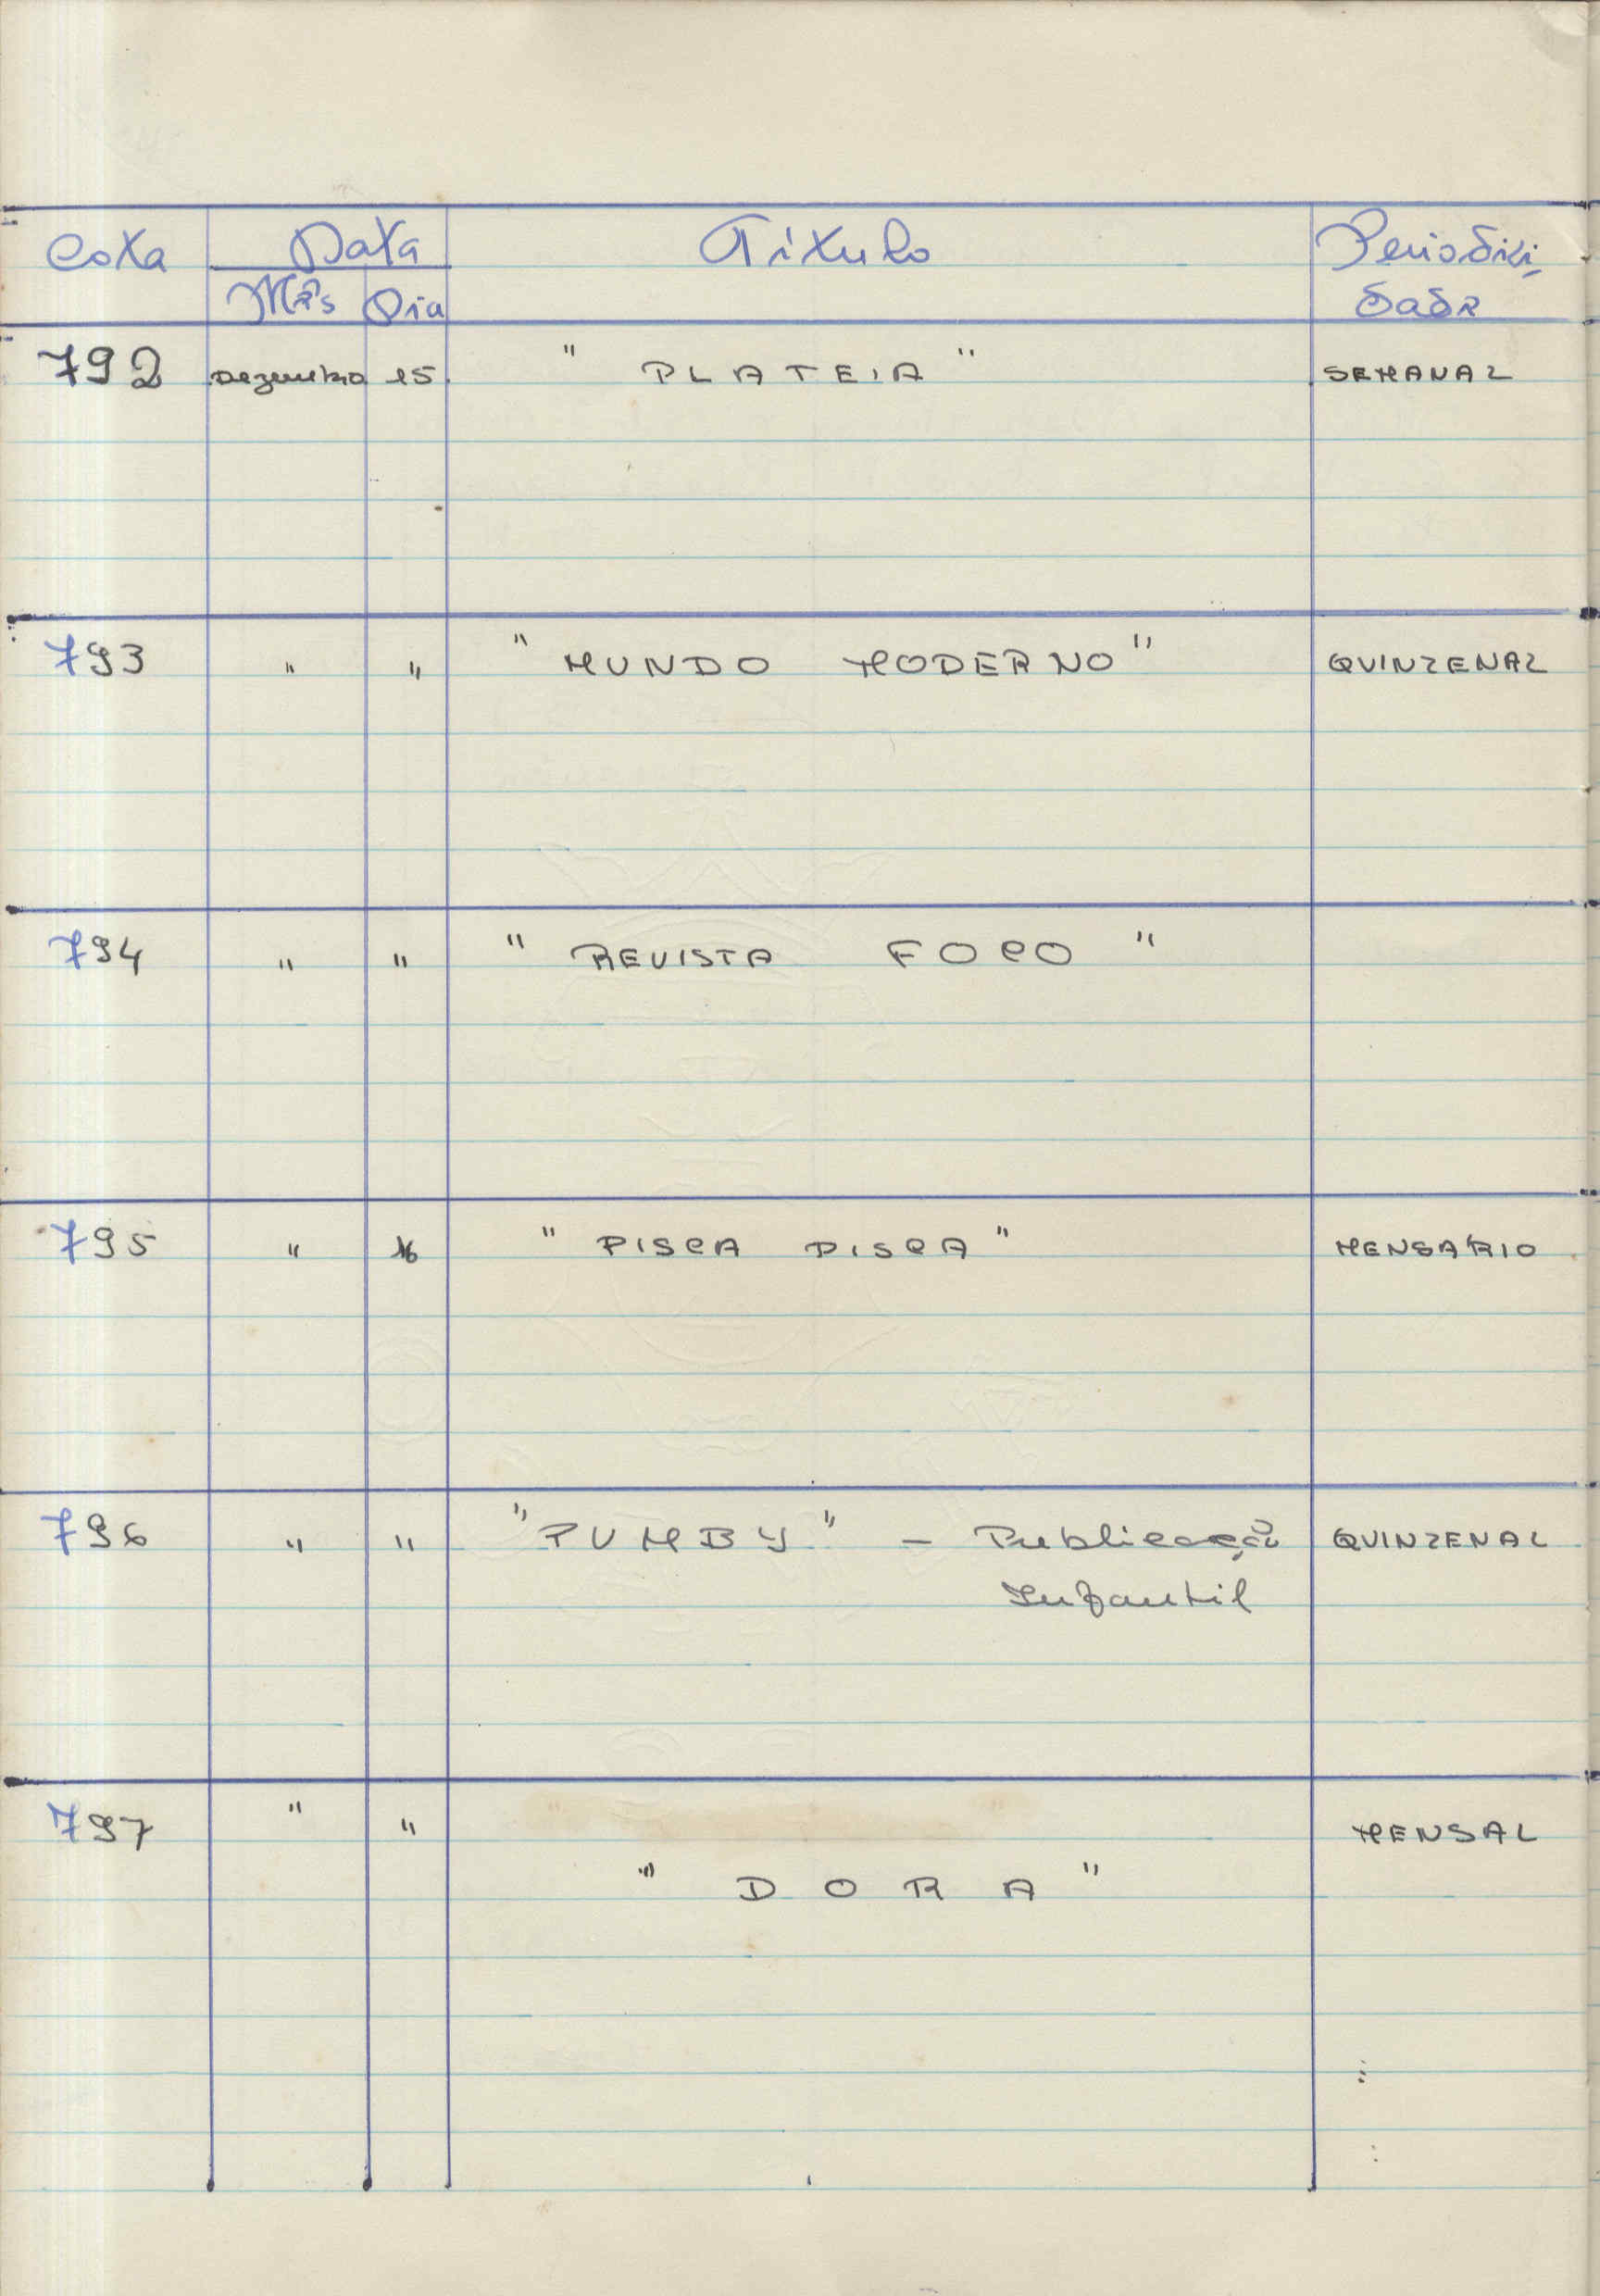 Cota Data Título Periodici-
Mês Dia dade
792 Dezembro 15 "PLATEIA" SEMANAL
793 " " "MUNDO MODERNO" QUINZENAL
794 " " "REVISTA FOCO"
795 " 16 "PISCA PISCA" MENSÁRIO
796 " " "PUMBY" - Publicação QUINZENAL
Infantil
797 " " MENSAL
"DORA"